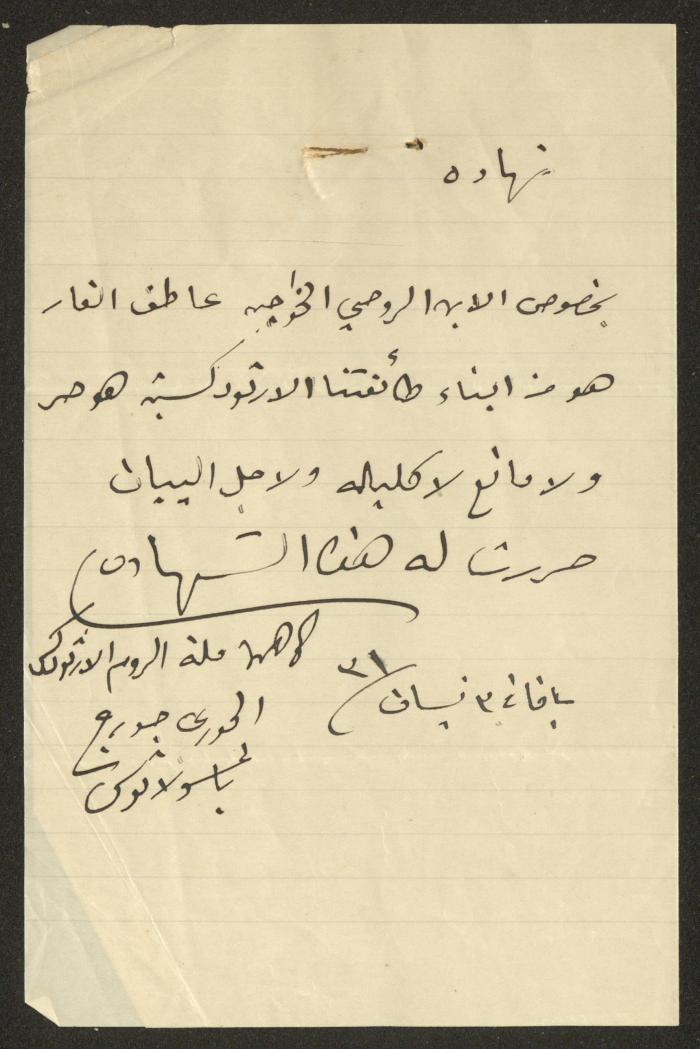 شهاده
بخصوص الابن الروحي الخواجه عاطف الفار
هو من ابناء طائفتنا الارثودكسية هو حر
ولا مانع لاكليله ولاجل البيان
حررت له هذه الشهاده
كاهن ملة الروم الارثودكس
يافا في ٣ نيسان ٣١
الخوري جورج